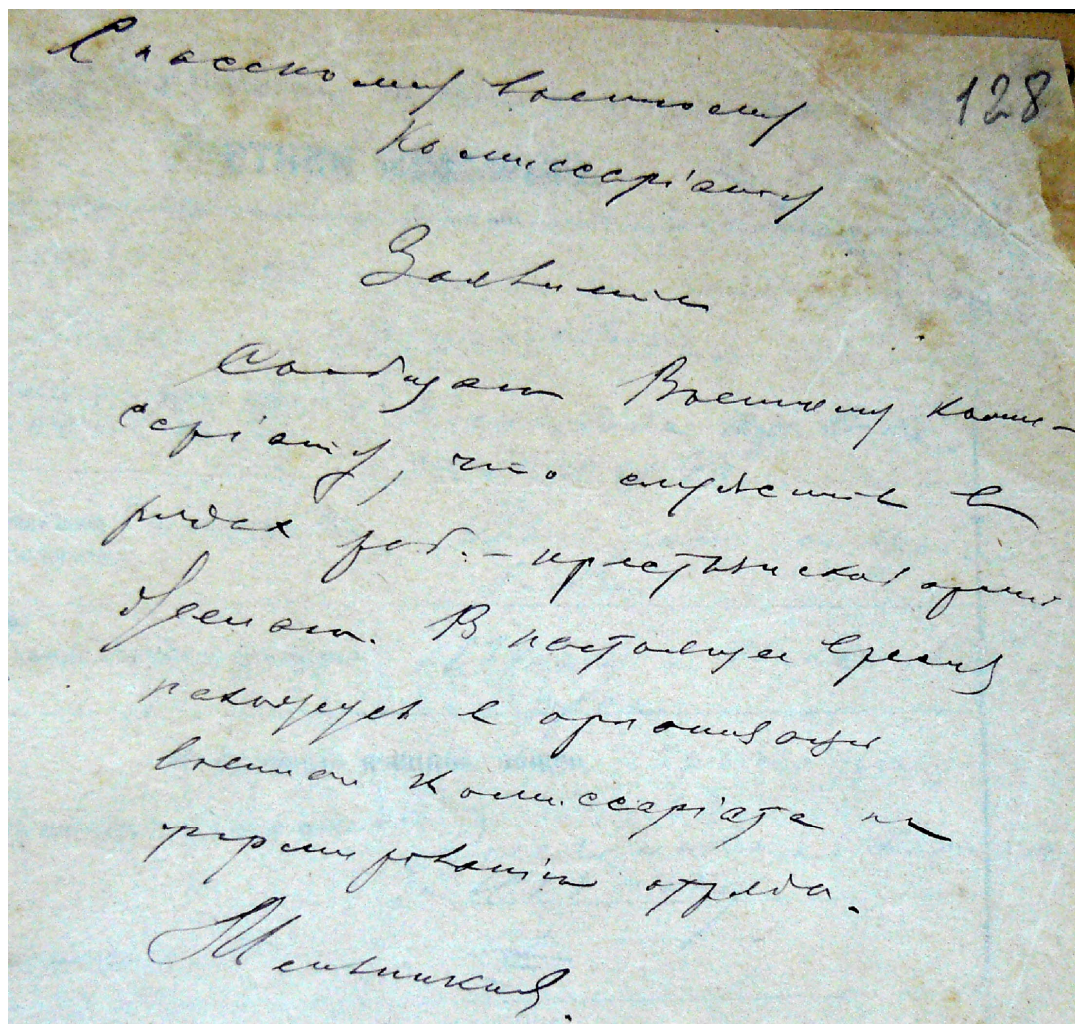 128
Спасскому военному
Комиссаріату
Заявление
Сообщаю Военному комис-
саріату, что служить в
рядах раб.-крестьянской арміи
желаю. В настоящее время
нахожусь в организаціи
военнаго Комиссаріата на
формированіи отряда.